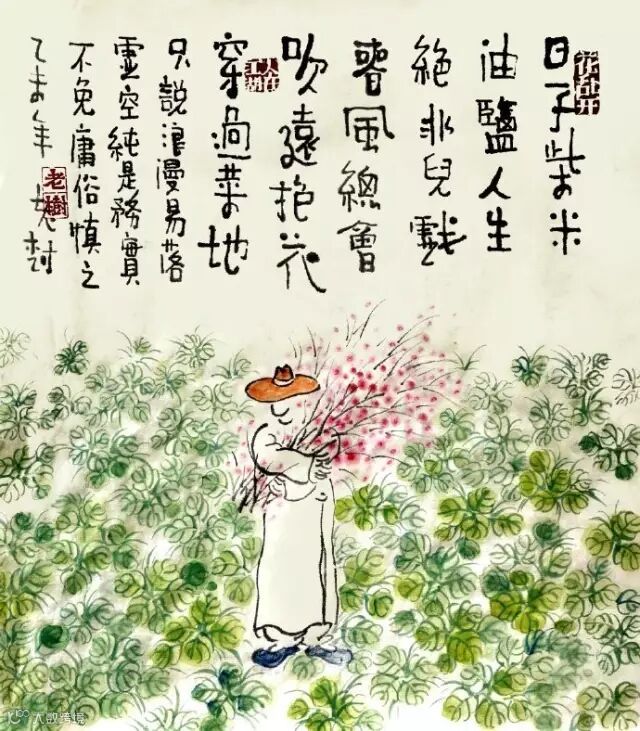 花乱开
日子柴米
油鹽人生
絕非兒戲
春風總會
吹遠抱花
人在江湖
穿過菜地
只說浪漫易落
虛空純是務實
不免庸俗慎之
乙未年老树
老樹
大数跨境